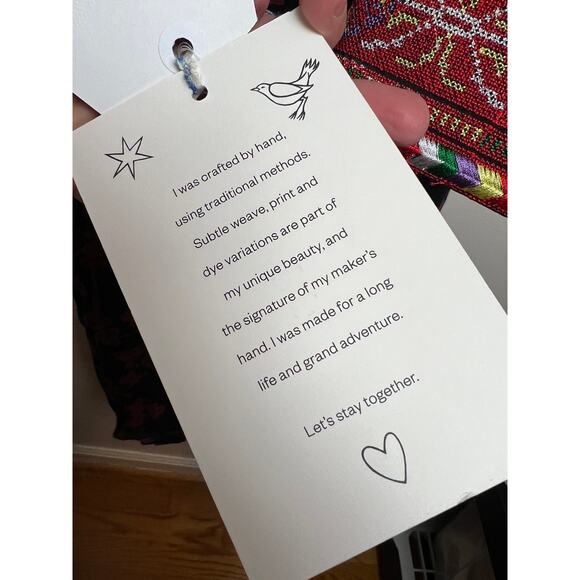 I was crafted by hand,
using traditional methods.
Subtle weave, print and
dye variations are part of
my unique beauty, and
the signature of my maker's
hand. I was made for a long
life and grand adventure.
Let's stay together.